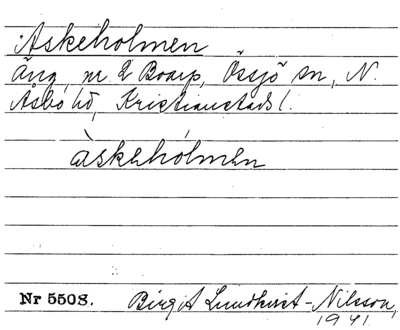 Askeholmen
Äng, nr 2 Boarp, Össjö sn, N.
Åsbo hd, Kristianstads l.
àskehólmen
Nr 5508. Birgit Lundkvist-Nilsson,
1941.